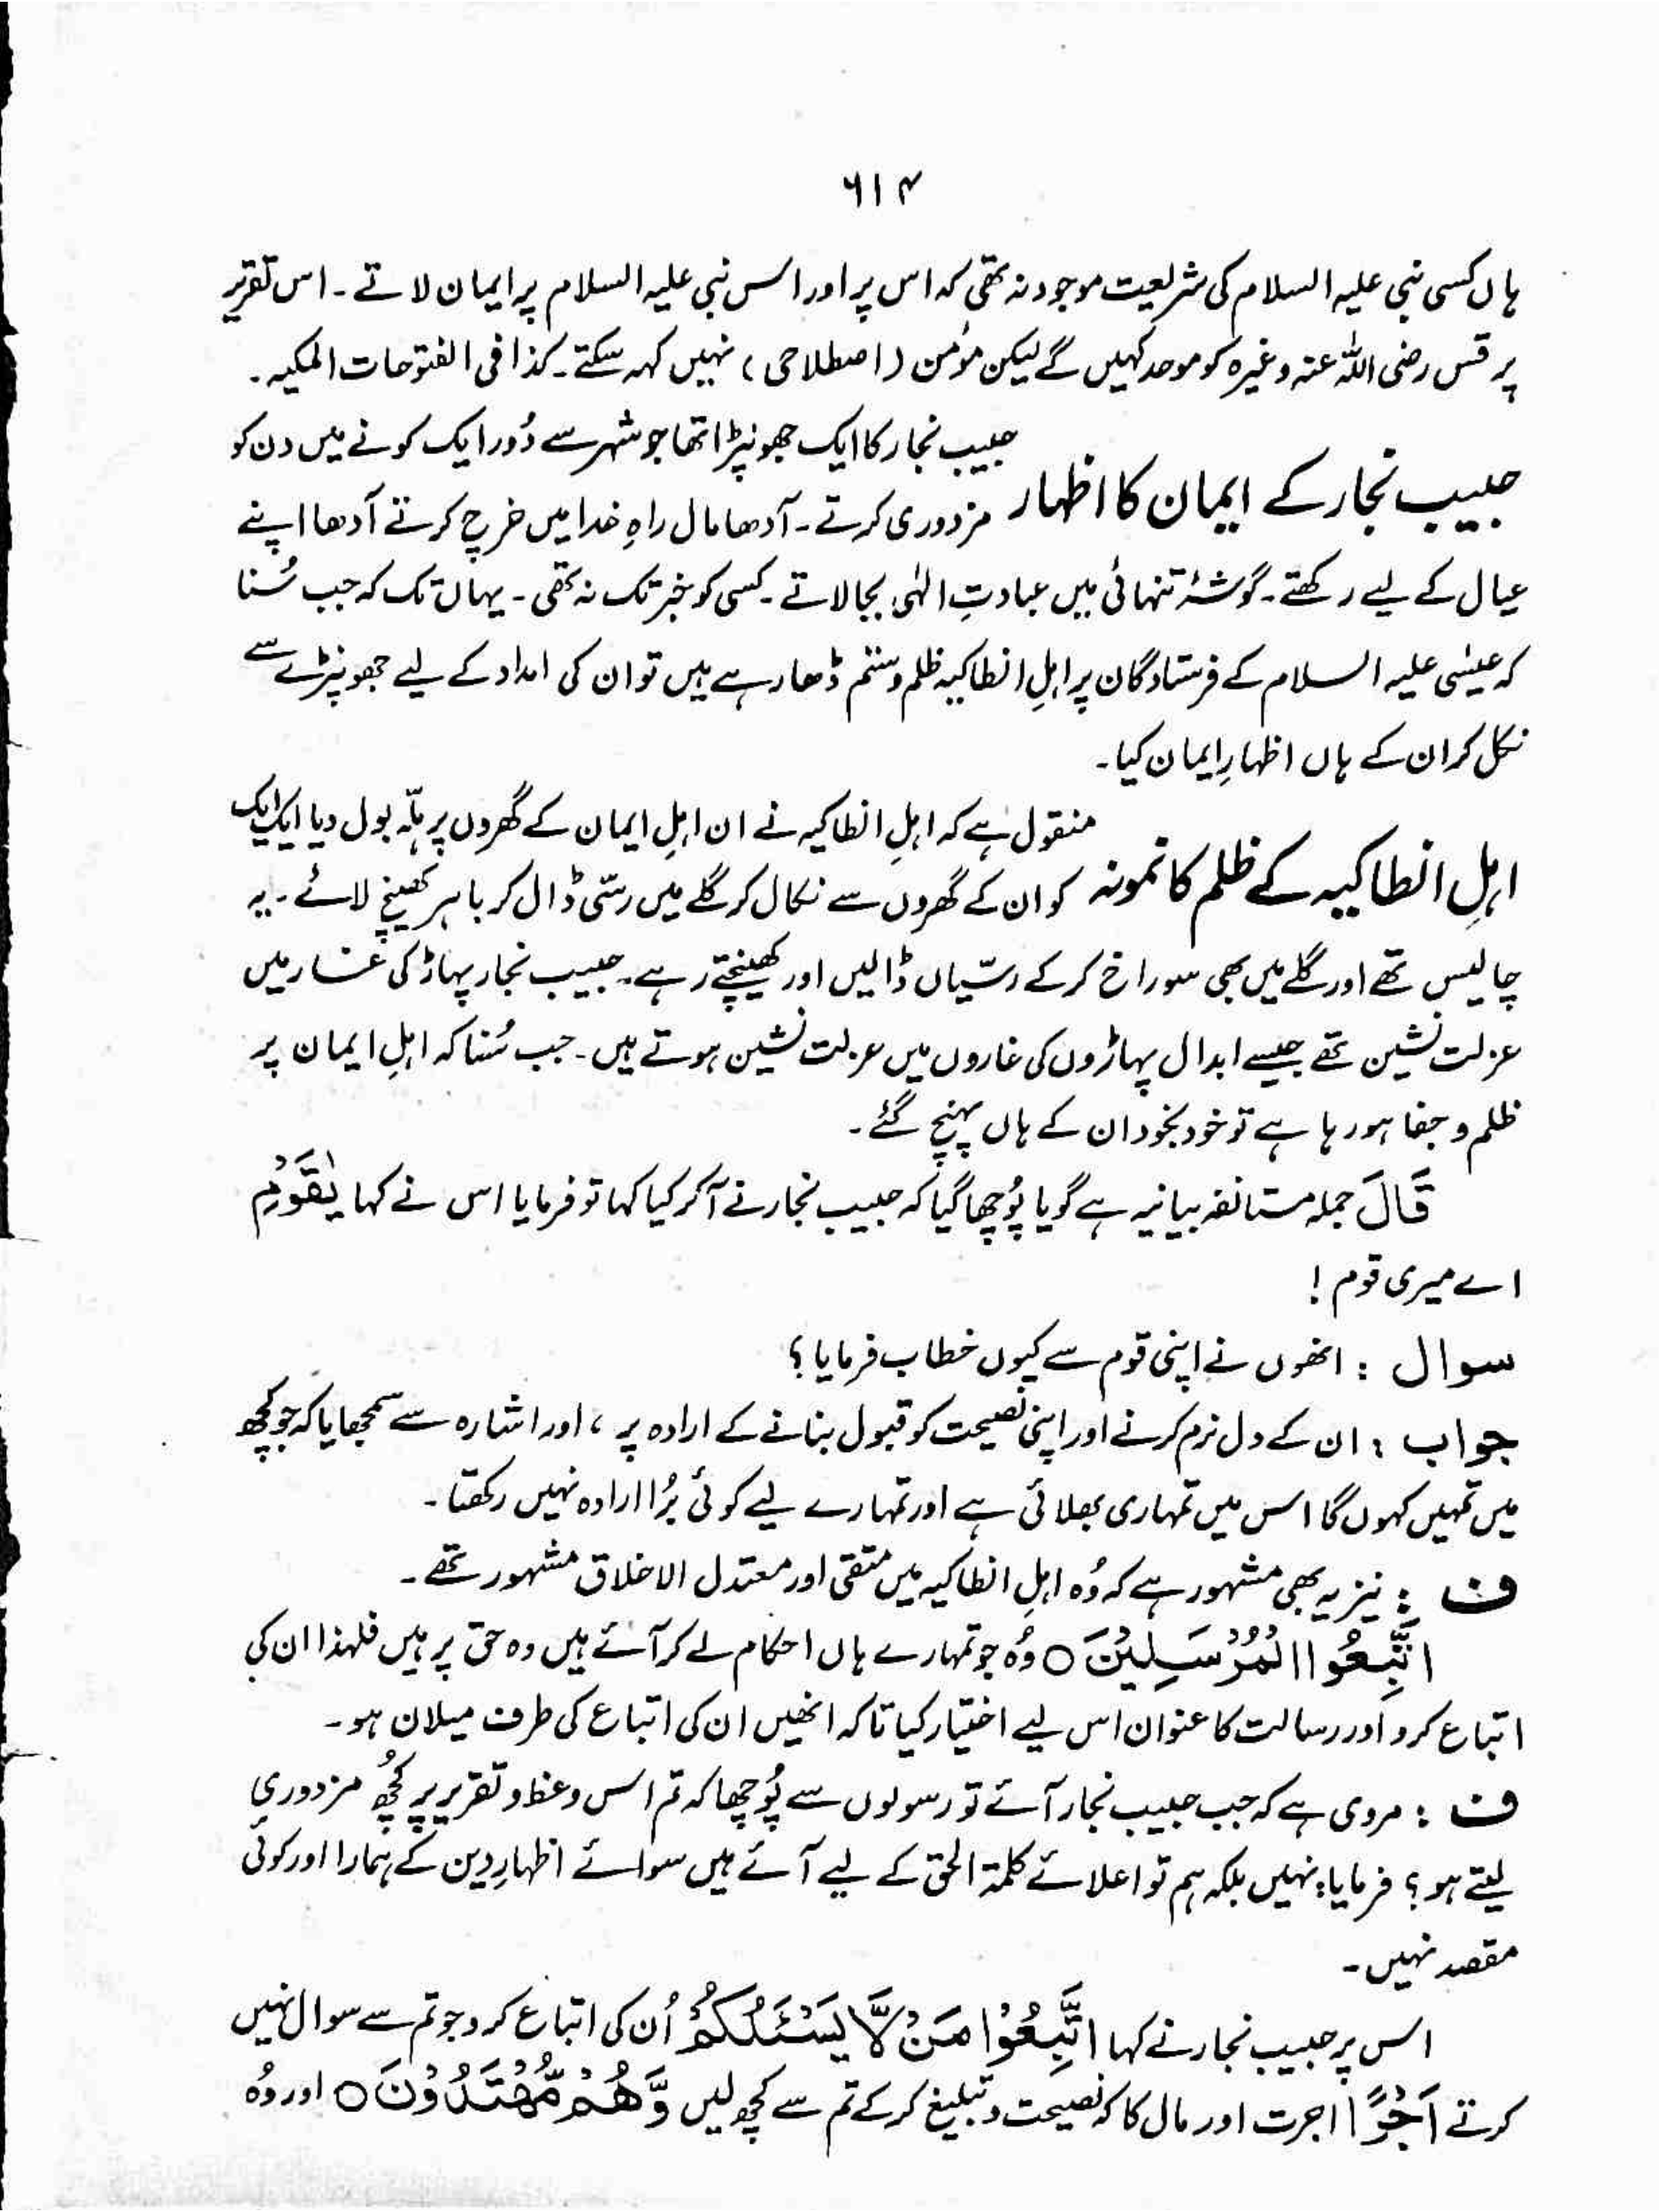 ۶۱۴
ہاں کسی نبی علیہ السلام کی شریعت موجود نہ تھی کہ اس پر اور اس نبی علیہ السلام پر ایمان لاتے۔ اس تقریر
پر قس رضی اللہ عنہ وغیرہ کو موحد کہیں گے لیکن مؤمن (اصطلاحی) نہیں کہہ سکتے۔ کذا فی الفتوحات المکیہ۔
حبیب نجار کے ایمان کا اظہار
حبیب نجار کا ایک جھونپڑا تھا جو شہر سے دُور ایک کونے میں دن کو
مزدوری کرتے۔ آدھا مال راہِ خدا میں خرچ کرتے آدھا اپنے
عیال کے لیے رکھتے۔ گوشۂ تنہائی میں عبادتِ الٰہی بجالاتے۔ کسی کو خبر تک نہ تھی۔ یہاں تک کہ جب سُنا
کہ عیسٰی علیہ السلام کے فرستادگان پر اہلِ انطاکیہ ظلم و ستم ڈھا رہے ہیں تو ان کی امداد کے لیے جھونپڑے سے
نکل کر ان کے ہاں اظہارِ ایمان کیا۔
اہلِ انطاکیہ کے ظلم کا نمونہ
منقول ہے کہ اہلِ انطاکیہ نے ان اہلِ ایمان کے گھروں پر ہلّہ بول دیا ایک ایک
کو ان کے گھروں سے نکال کر گلے میں رسّی ڈال کر باہر کھینچ لائے۔ یہ
چالیس تھے اور گلے میں بھی سوراخ کر کے رسّیاں ڈالیں اور کھینچتے رہے۔ حبیب نجار پہاڑ کی غار میں
عزلت نشین تھے جیسے ابدال پہاڑوں کی غاروں میں عزلت نشین ہوتے ہیں۔ جب سُنا کہ اہلِ ایمان پر
ظلم و جفا ہو رہا ہے تو خود بخود ان کے ہاں پہنچ گئے۔
قَالَ جملہ مستانفہ بیانیہ ہے گویا پُوچھا گیا کہ حبیب نجار نے آ کر کیا کہا تو فرمایا اس نے کہا یٰقَوْمِ
اے میری قوم!
سوال : انھوں نے اپنی قوم سے کیوں خطاب فرمایا؟
جواب : ان کے دل نرم کرنے اور اپنی نصیحت کو قبول بنانے کے ارادہ پر، اور اشارہ سے سمجھایا کہ جو کچھ
میں تمہیں کہوں گا اس میں تمہاری بھلائی ہے اور تمہارے لیے کوئی بُرا ارادہ نہیں رکھتا۔
ف : نیز یہ بھی مشہور ہے کہ وُہ اہلِ انطاکیہ میں متقی اور معتدل الاخلاق مشہور تھے۔
اتَّبِعُوا الْمُرْسَلِیْنَ ○ وُہ جو تمہارے ہاں احکام لے کر آئے ہیں وہ حق پر ہیں فلہذا ان کی
اتباع کرو اور رسالت کا عنوان اس لیے اختیار کیا تاکہ انھیں ان کی اتباع کی طرف میلان ہو۔
ف : مروی ہے کہ جب حبیب نجار آئے تو رسولوں سے پُوچھا کہ تم اس وعظ و تقریر پر کچُھ مزدوری
لیتے ہو؟ فرمایا: نہیں بلکہ ہم تو اعلائے کلمۃ الحق کے لیے آئے ہیں سوائے اظہارِ دین کے ہمارا اور کوئی
مقصد نہیں۔
اس پر حبیب نجار نے کہا اتَّبِعُوْا مَنْ لَّا یَسْـَٔلُکُمْ اُن کی اتباع کرو جو تم سے سوال نہیں
کرتے اَجْرًا اجرت اور مال کا کہ نصیحت و تبلیغ کر کے تم سے کچھ لیں وَّهُمْ مُّهْتَدُوْنَ ○ اور وُہ